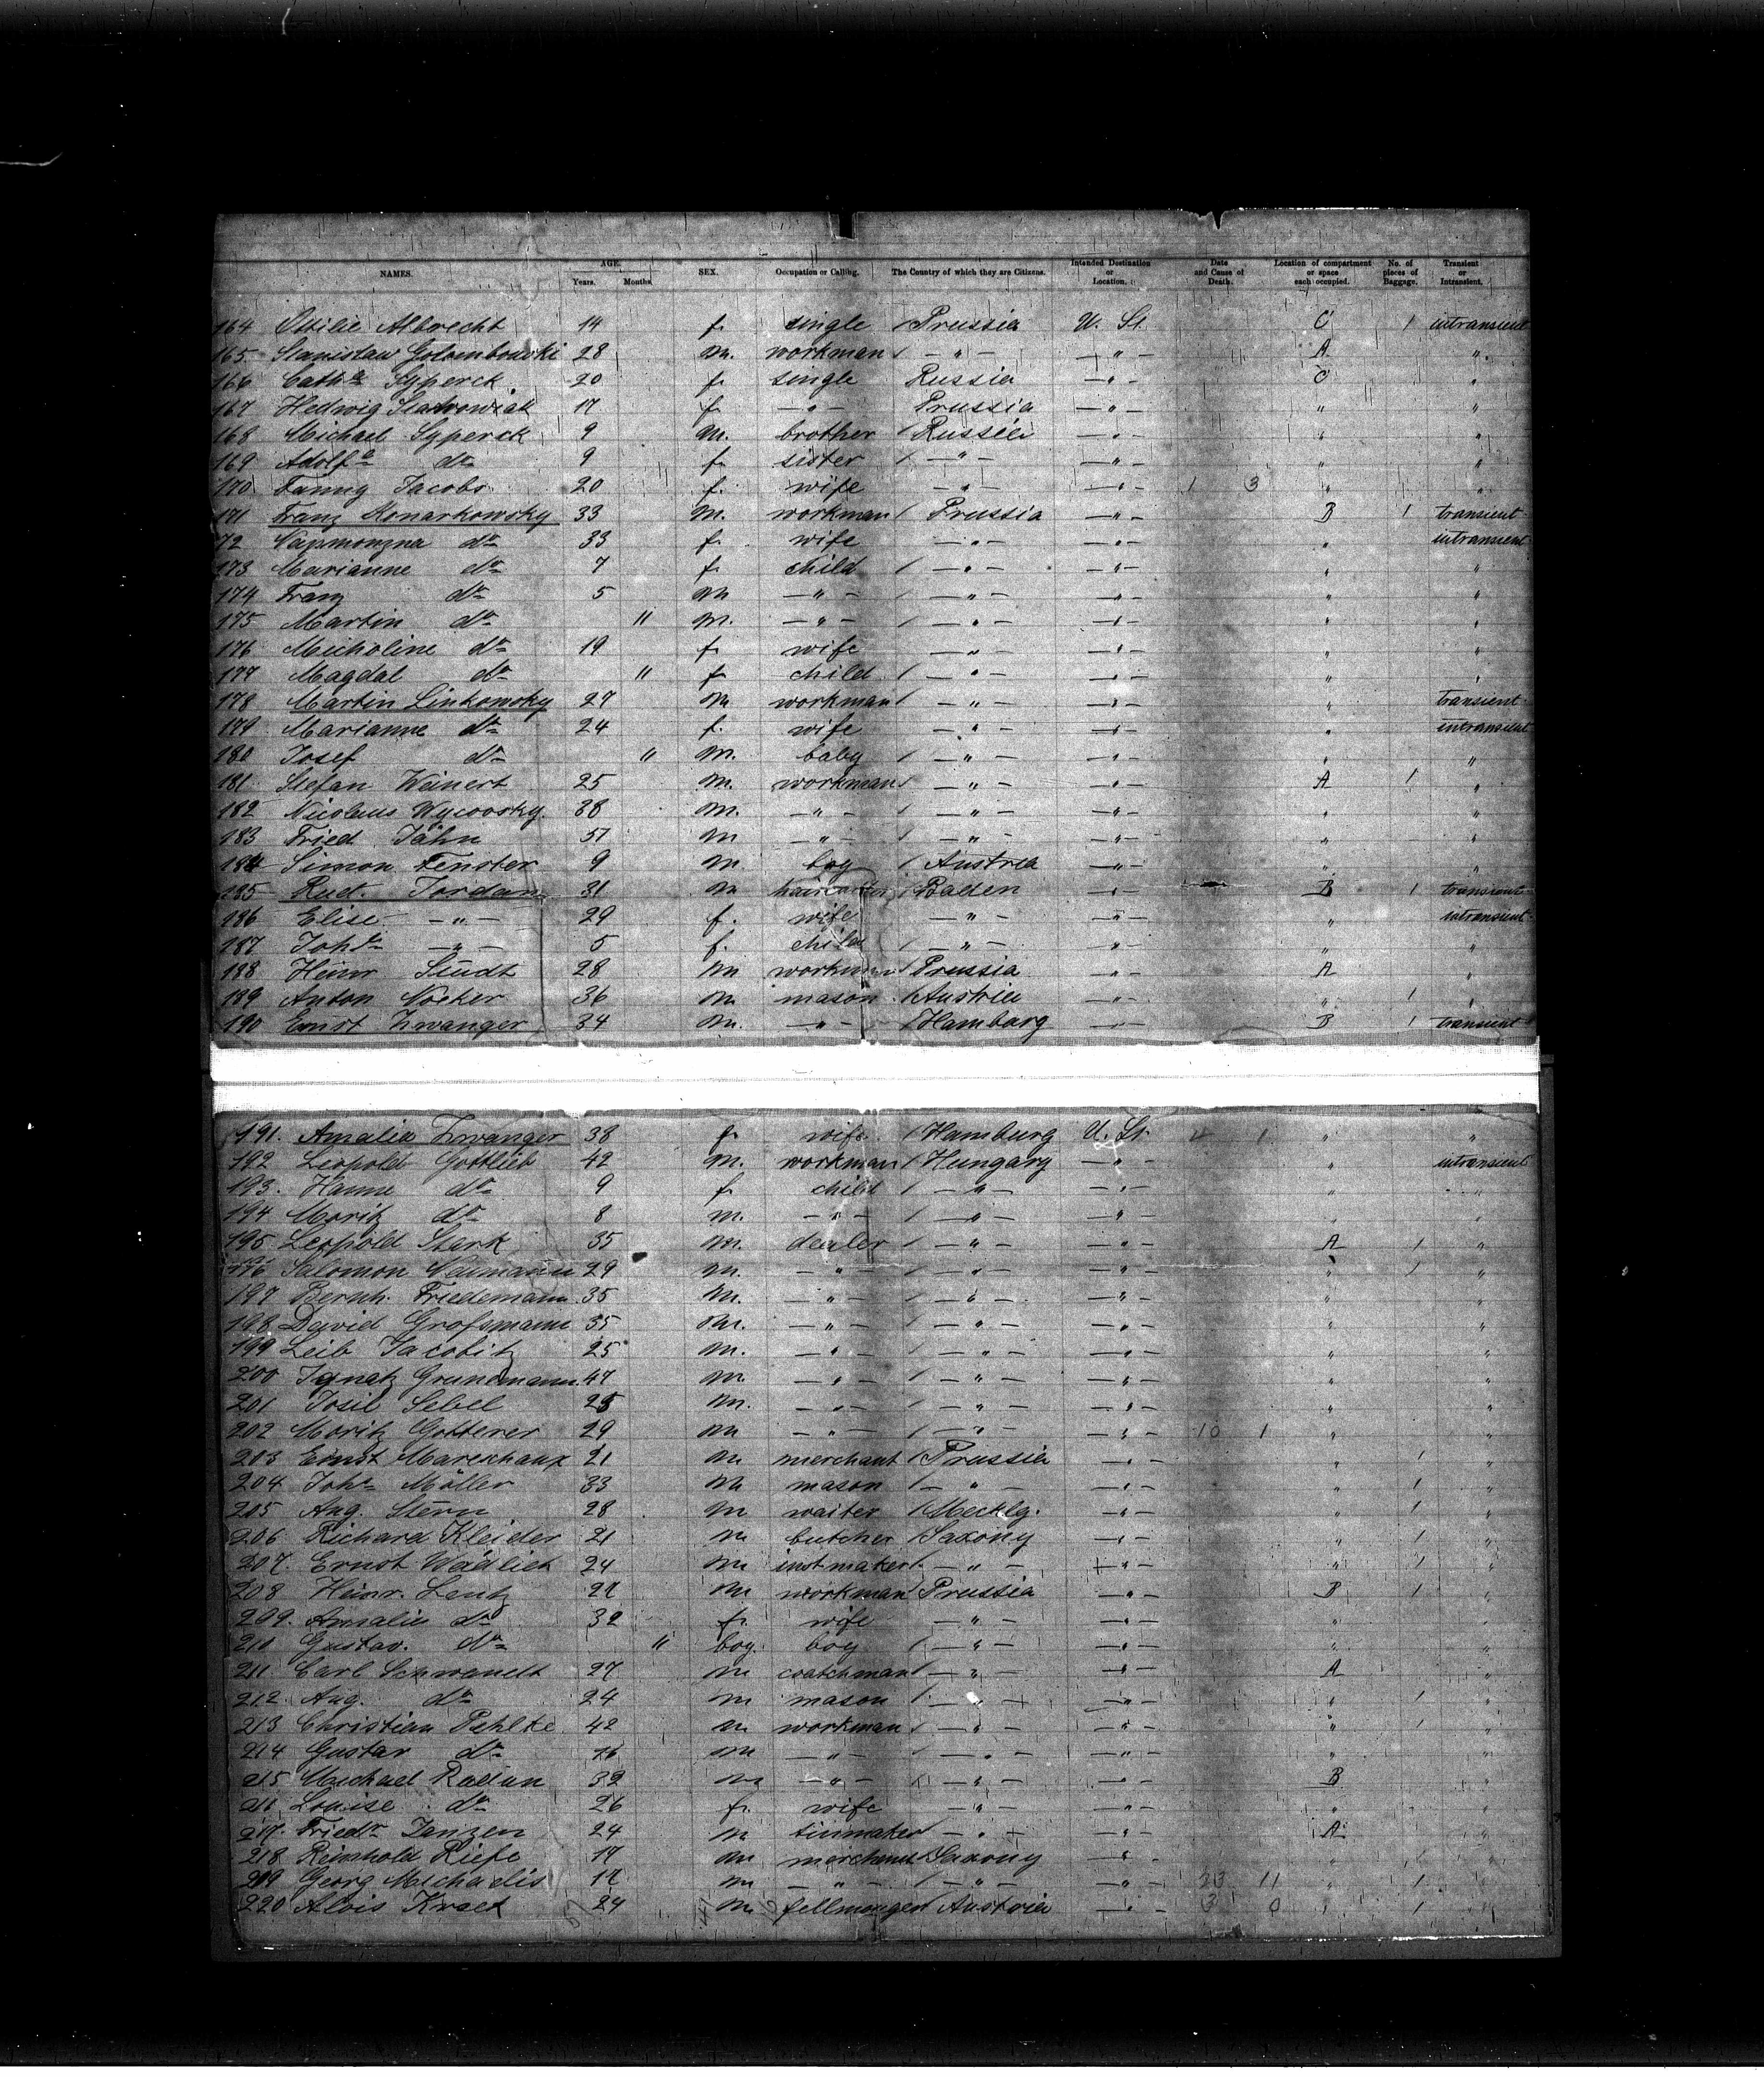 NAMES. AGE. Years. Months. SEX. Occupation or Calling. The Country of which they are Citizens. Intended Destination or Location. Date and Cause of Death. Location of compartment or space each occupied. No. of pieces of Baggage. Transient or Intransient.
164 Ottilie Albrecht 14 f. single Prussia U. St. C 1 intransient
165 Stanislaw Golombowski 28 m. workman — " — — " — A "
166 Cath.a Syperck 20 f. single Russia — " — C "
167 Hedwig 17 f. — " — Prussia — " — " "
168 Michael Syperck 9 m. brother Russia — " — " "
169 Adolf.a do 9 f. sister — " — — " — " "
170 Fanny Jacobs 20 f. wife — " — — " — 1 3 " "
171 Franz Konarkowsky 33 m. workman Prussia — " — B 1 transient
72 do 33 f. wife — " — — " — " intransient
173 Marianne do 7 f. child — " — — " — " "
174 Franz do 5 m — " — — " — — " — " "
175 Martin do 11 m. — " — — " — — " — " "
176 Micholine do 19 f. wife — " — — " — " "
177 Magdal do 11 f child — " — — " — " "
178 Martin Linkowsky 27 m workman — " — — " — " transient
179 Marianne do 24 f. wife — " — — " — " intransient
180 Josef do 11 m. baby — " — — " — " "
181 Stefan Weinert 25 m. workman — " — — " — A 1 "
182 Nicolaus Wycovsky 38 m. — " — — " — — " — " "
183 Fried Jähn 57 m — " — — " — — " — " "
184 Simon Fenster 9 m boy Austria — " — " "
185 Rud. Jordan 31 m Baden — " — B 1 transient
186 Elise — " — 29 f. wife — " — — " — " intransient
187 Joh.a — " — 5 f. child — " — — " — " "
188 Heinr Sindt 28 m workman Prussia — " — A "
189 Anton Nocker 36 m mason Austria — " — " 1 "
190 Ernst Zwanger 34 m. — " — Hamburg — " — B 1 transient
191. Amalia Zwanger 38 f. wife Hamburg U. St. 4 1 " "
192 Leopold Gottlieb 42 m. workman Hungary — " — " intransient
193. Hanne do 9 f. child — " — — " — " "
194 Moritz do 8 m. — " — — " — — " — " "
195 Leopold Stark 35 m. dealer — " — — " — A 1 "
196 Salomon Neumann 29 m. — " — — " — — " — " 1 "
197 Bernh. Friedemann 35 m. — " — — " — — " — " "
198 David Grossmann 35 m. — " — — " — — " — " "
199 Leib Jacobitz 25 m. — " — — " — — " — " "
200 Ignatz Grundmann 47 m. — " — — " — — " — " "
201 Josil Sebel 25 m. — " — — " — — " — " "
202 Moritz Gotterer 29 m — " — — " — — " — 10 1 " "
203 Ernst Mareschaux 21 m merchant Prussia — " — " 1 "
204 Joh.s Möller 33 m mason — " — — " — " 1 "
205 Aug. Stern 28 m waiter Mecklg. — " — " 1 "
206 Richard Kleider 21 m butcher Saxony — " — " 1 "
207. Ernst Waidlich 24 m inst maker — " — — " — " 1 "
208 Heinr. Lentz 27 m workman Prussia — " — B 1 "
209. Amalie do 32 f. wife — " — — " — " "
210 Gustav. do 11 boy. boy — " — — " — " "
211 Carl Schwandt 27 m coatchman — " — — " — A "
212. Aug. do 24 m mason — " — — " — " 1 "
213 Christian Pahlke 42 m workman — " — — " — " 1 "
214 Gustav do 16 m — " — — " — — " — " "
215 Michael Radun 32 m — " — — " — — " — B "
216 Louise do 26 f. wife — " — — " — " "
217. Friedr Janzen 24 m tinmaker — " — — " — A "
218 Reinhold Riefe 17 m merchant Saxony — " — " "
219 Georg Michaelis 17 m — " — — " — — " — 23 11 " 1 "
220 Alois 24 m fellmonger Austria — " — 3 0 " 1 "